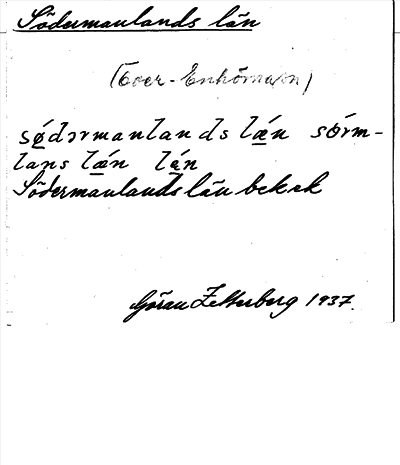 Södermanlands län
(Över-Enhörna sn)
sǿdərmanlands lǽn sǿrm-
lans lǽn lǽn
Södermanlands län
Göran Zetterberg 1937.